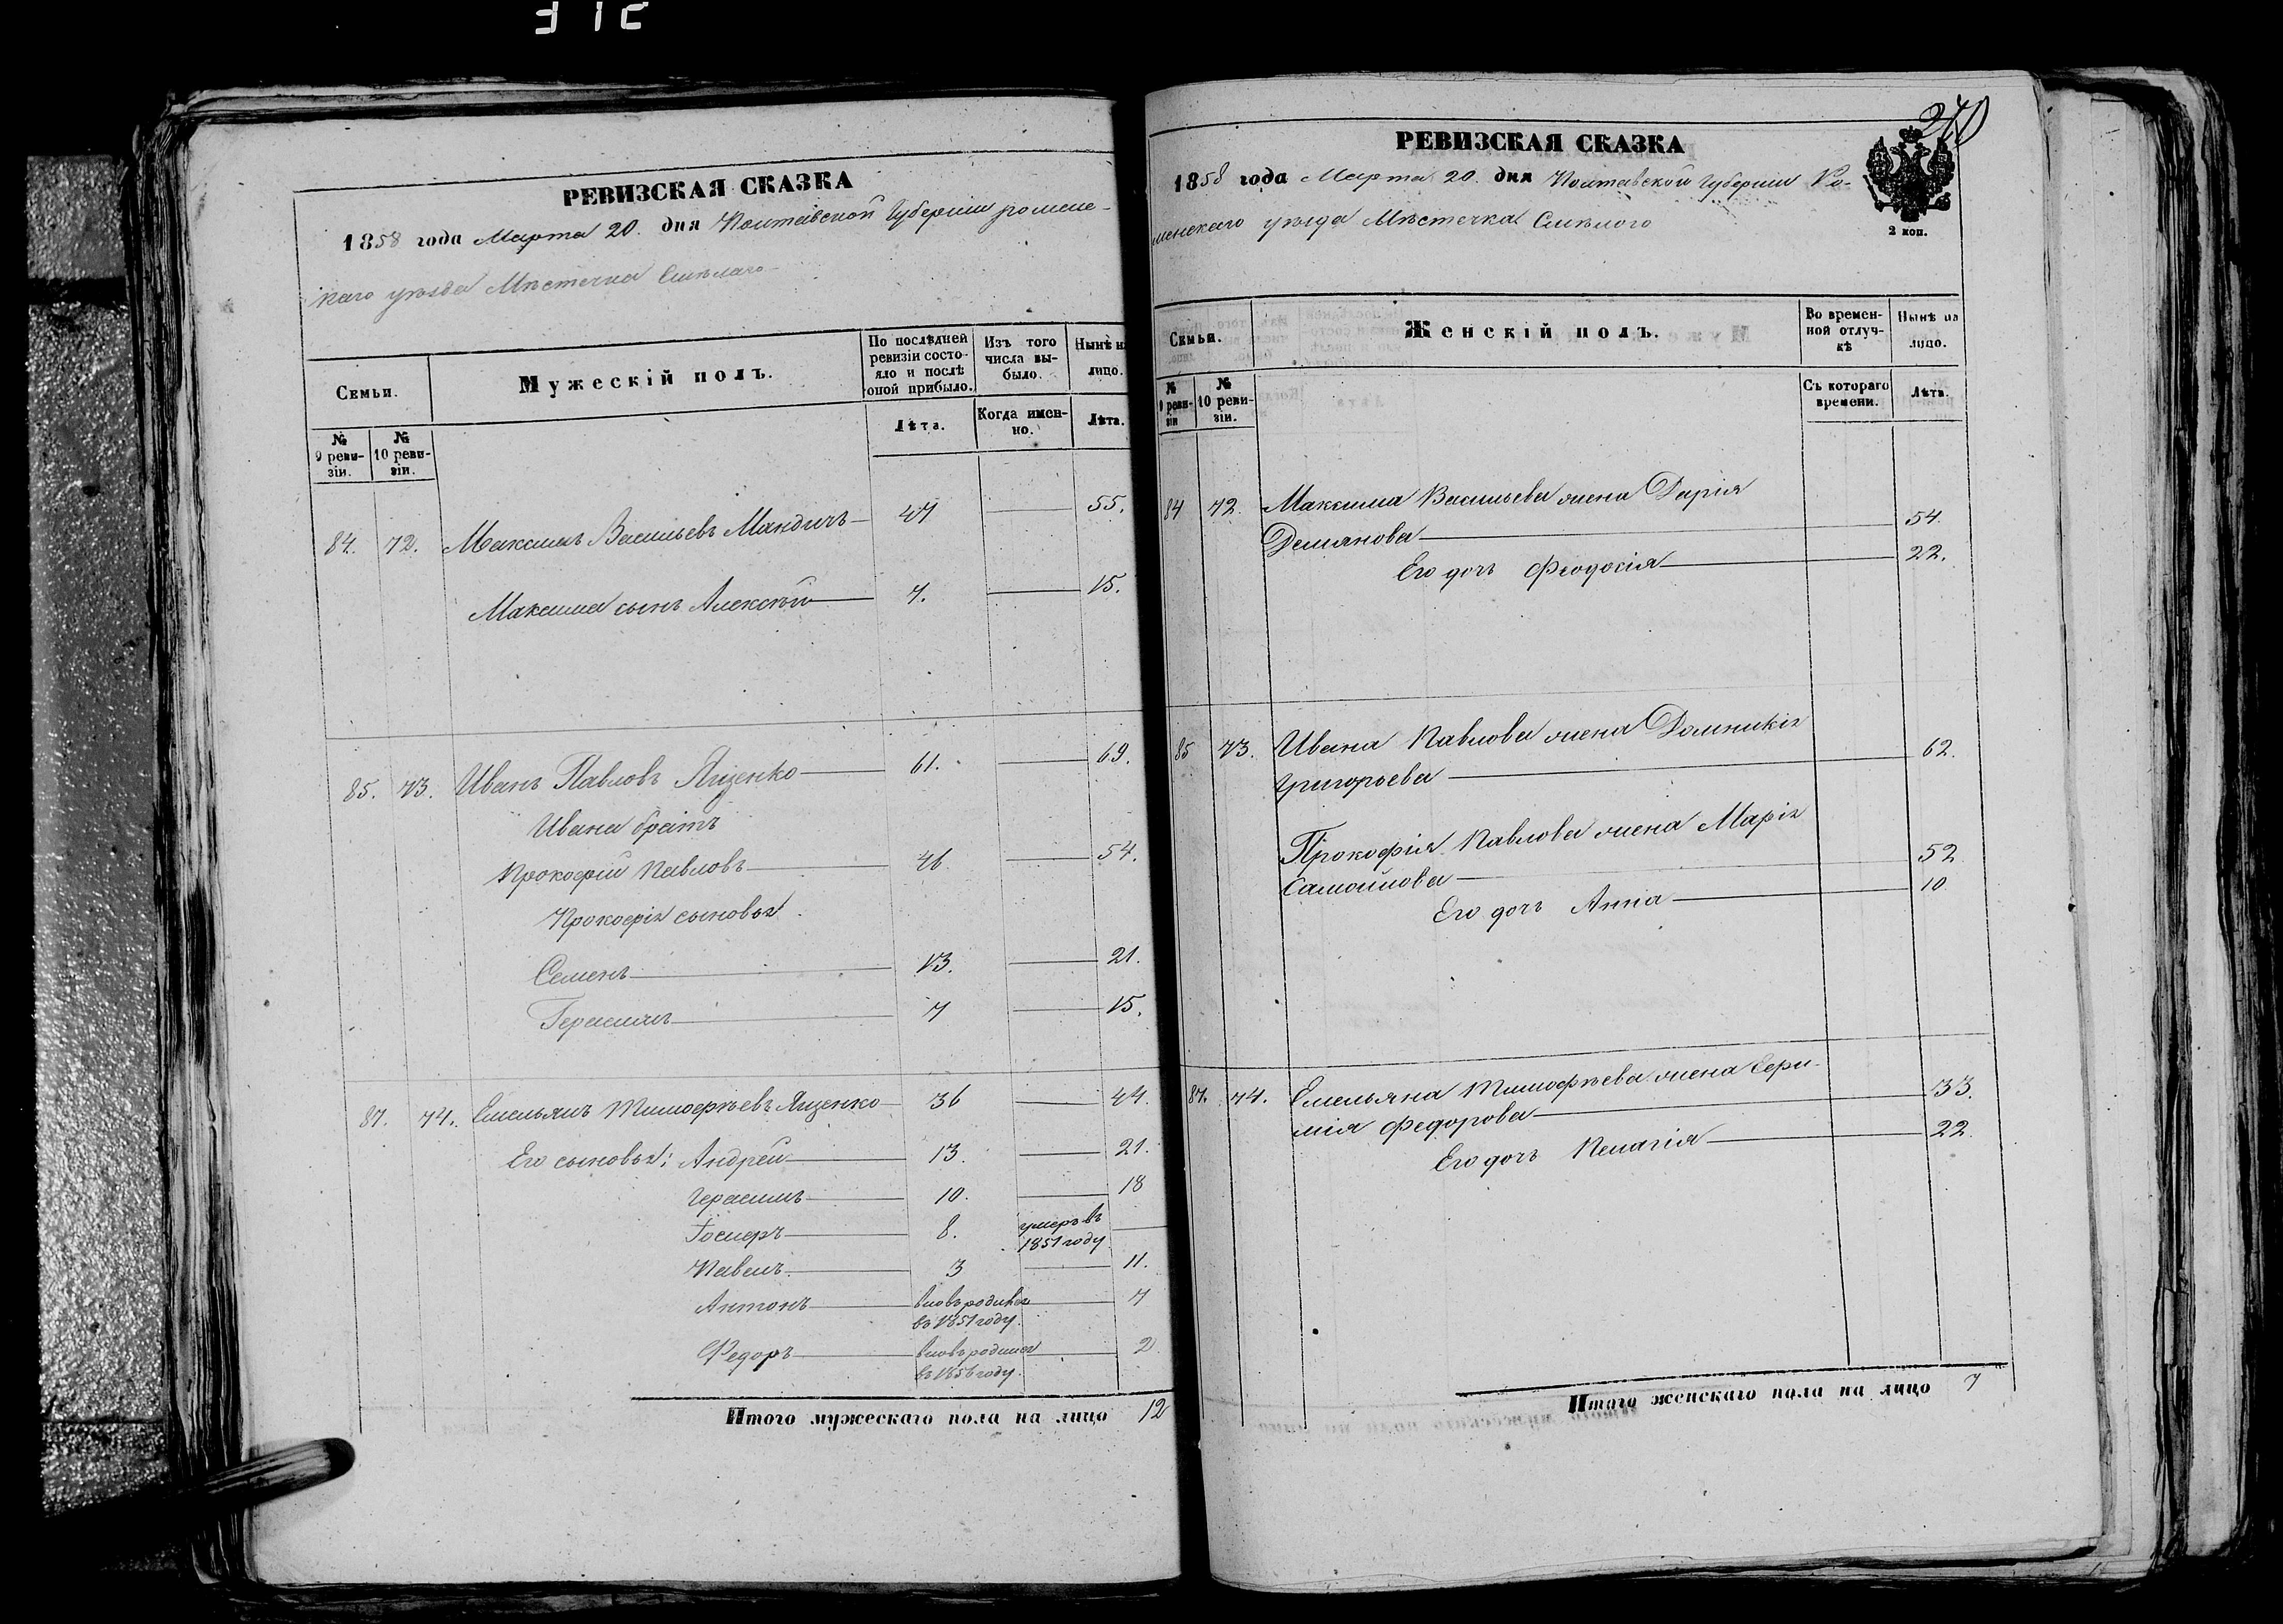 РЕВИЗСКАЯ СКАЗКА
1858 года Марта 20. дня Полтавской Губернии ромен-
скаго уѣзда Мѣстечка Смѣлаго
Семьи.
Мужескій полъ.
По послѣдней ревизіи состояло и послѣ оной прибыло.
Изъ того числа выбыло.
Нынѣ на лицо.
№ 9 ревизіи.
№ 10 ревизіи.
Лѣта.
Когда именно.
Лѣта.
84. 72. Максимъ Васильевъ Мандичъ 47 55.
Максима сынъ Алексѣй 7. 15.
85. 73. Иванъ Павловъ Яценко 61. 69.
Ивана братъ
Прокофій Павловъ 46 54.
Прокофія сыновья
Семенъ 13. 21.
Герасимъ 7 15.
87. 74. Емельянъ Тимофѣевъ Яценко 36 44.
Его сыновья: Андрей 13. 21.
Герасимъ 10. 18
8. умеръ въ
1851 году
Павелъ 3 11.
Антонъ вновь родился 7
въ 1851 году.
Федоръ вновь родился 2
въ 1856 году.
Итого мужескаго пола на лицо 12
240
РЕВИЗСКАЯ СКАЗКА
1858 года Марта 20. дня Полтавской Губерніи Ро-
менскаго уѣзда Мѣстечка Смѣлого
2 коп.
Семьи.
Женскій полъ.
Во временной отлучкѣ
Нынѣ на лицо.
№ 9 ревизіи
№ 10 ревизіи.
Съ котораго времени.
Лѣта.
84 72. Максима Васильева жена Дарія
Демянова 54.
Его дочь Феодосія 22.
85 73. Ивана Павлова жена Домникія
Григорьева 62.
Прокофія Павлова жена Марія
Самойлова 52
Его дочь Анна 10
87. 74. Емельяна Тимофѣева жена
Федорова 33.
Его дочь Пелагія 22.
Итого женскаго пола на лицо 7